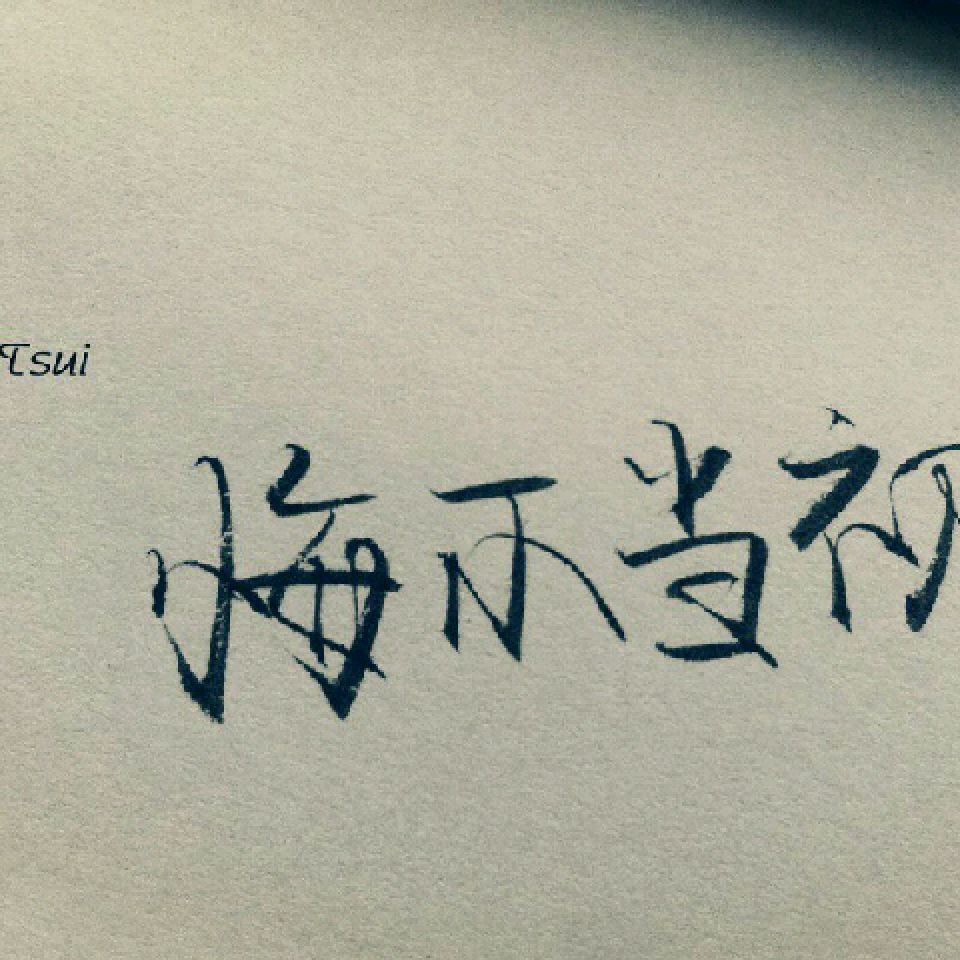 Tsui
悔不当初